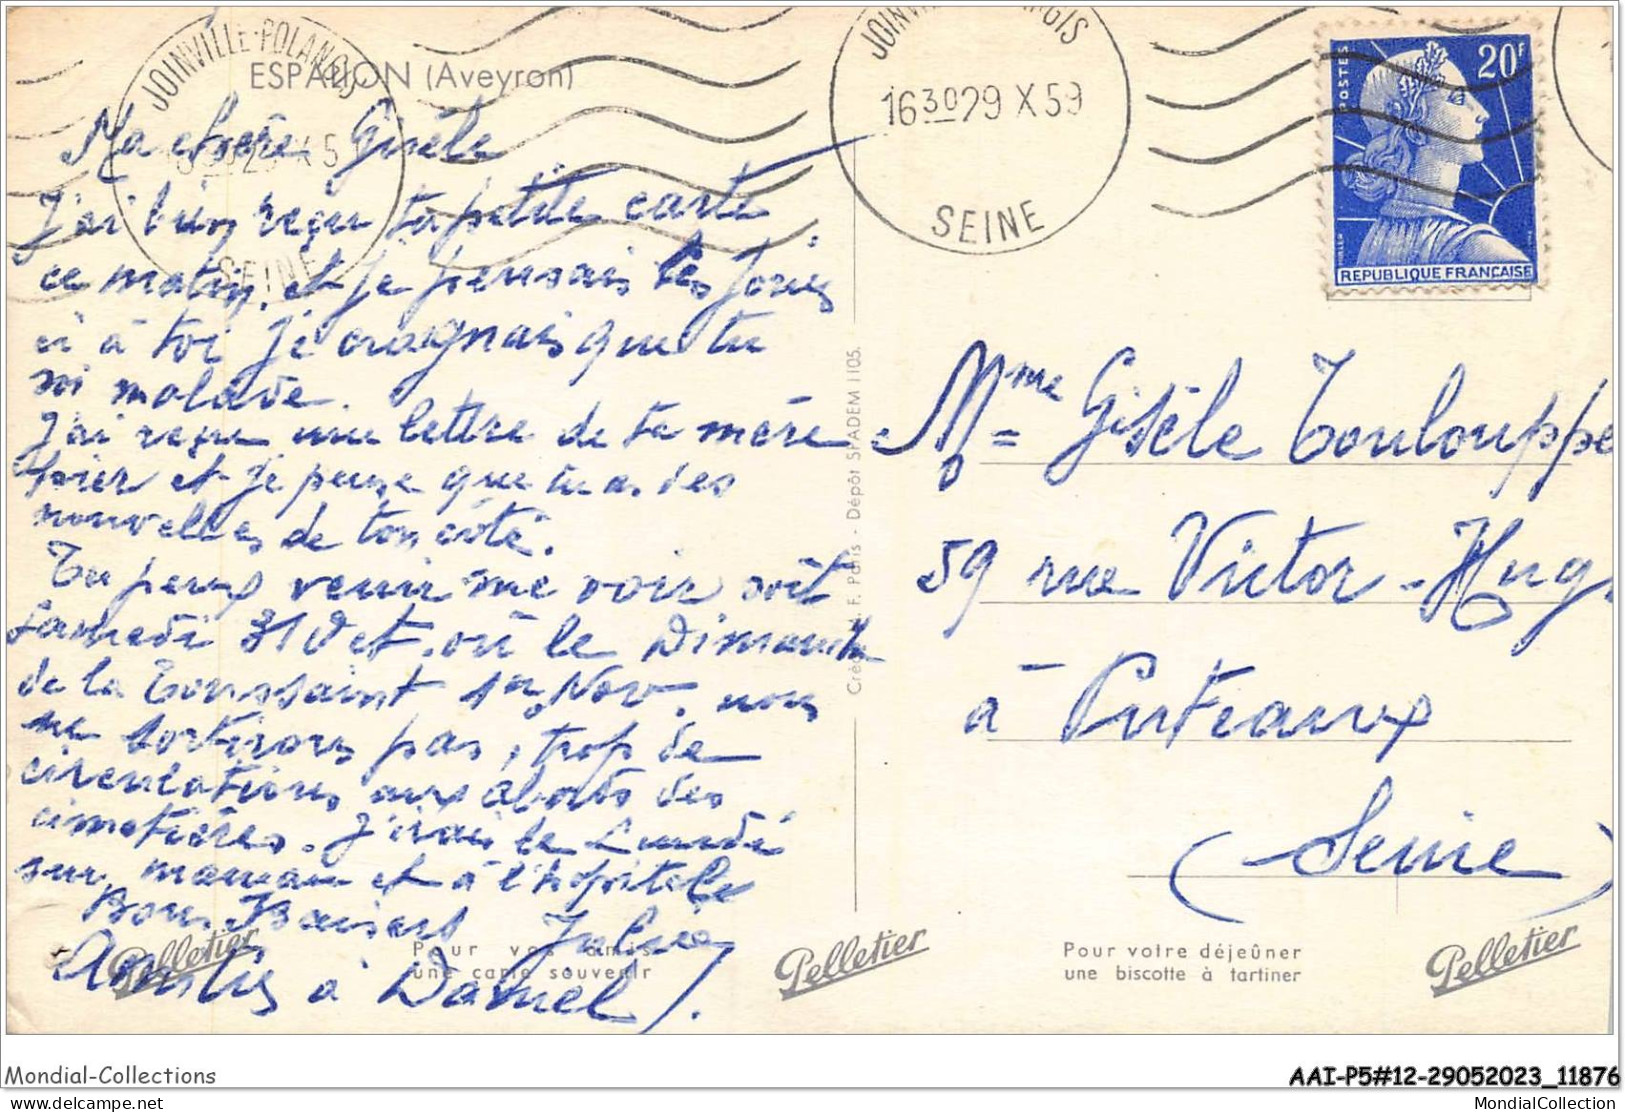 ESPALION (Aveyron)
JOINVILLE-POLANGIS
SEINE
Ma chère Gisèle
J'ai bien reçu ta petite carte
ce matin, et je pensais les jours
ci à toi je craignais que tu
soi malade.
J'ai reçu une lettre de ta mère
hier et je pense que tu as des
nouvelles de ton côté.
Tu peux venir me voir soit
Samedi 31 Oct. où le Dimanche
de la Toussaint 1er Nov. nous
ne sortirons pas, trop de
circulations aux abords des
cimetières. J'irai le Lundi
sur maman et à l'hopitale
Bons Baisers
Amitiés à Daniel.
Pelletier
Pour vos amis
une carte souvenir
Pelletier
Créé F. Paris - Dépôt STADEM 1105.
16 30 29 X 59
SEINE
POSTES
20F
REPUBLIQUE FRANÇAISE
Mme Gisèle Toulouppe
59 rue Victor-Hug
à Puteaux
(Seine)
Pour votre déjeûner
une biscotte à tartiner
Pelletier
Mondial-Collections
AAI-P5#12-29052023_11876
www.delcampe.net
MondialCollection